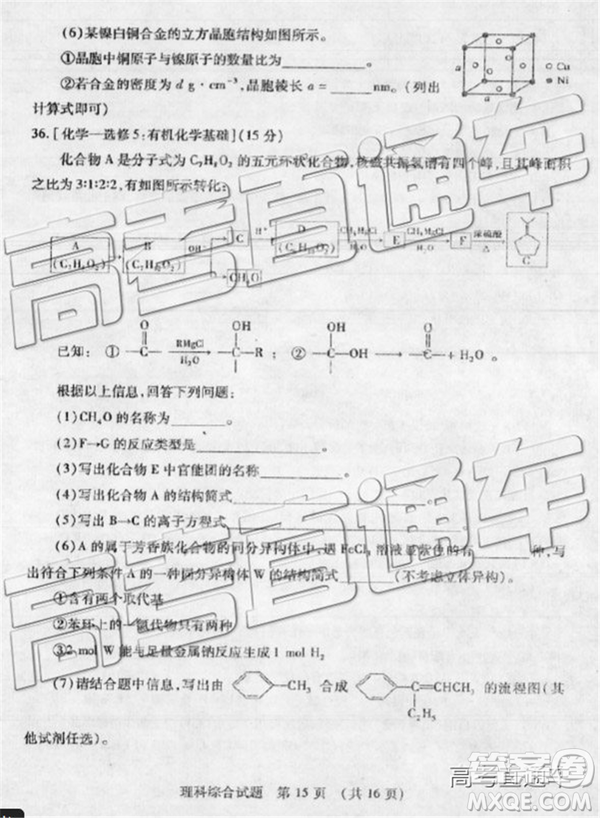 (6)某镍白铜合金的立方晶胞结构如图所示。
①晶胞中铜原子与镍原子的数量比为____。
②若合金的密度为 d g·cm⁻³,晶胞棱长 a=____nm。(列出
计算式即可)
a
a
Cu
Ni
36.[化学—选修5:有机化学基础](15分)
化合物A是分子式为C₇H₈O₂的五元环状化合物,核磁共振氢谱有四个峰,且其峰面积
之比为3:1:2:2,有如图所示转化:
A
B
OH⁻
C
H⁺
D
E
F
浓硫酸
△
H₂O
H₂O
CH₄O
已知:① —C— RMgCl H₂O —C—R ;② —C—OH → —C— + H₂O 。
根据以上信息,回答下列问题:
(1)CH₄O的名称为____。
(2)F→G的反应类型是____。
(3)写出化合物E中官能团的名称____。
(4)写出化合物A的结构简式____
(5)写出B→C的离子方程式
(6)A的属于芳香族化合物的同分异构体中,遇FeCl₃溶液显紫色的有____种,写
出符合下列条件A的一种同分异构体W的结构简式____(不考虑立体异构)。
①含有两个取代基
②苯环上的一氯代物只有两种
③2 mol W能与足量金属钠反应生成1 mol H₂
(7)请结合题中信息,写出由 —CH₃ 合成 —C=CHCH₃ 的流程图(其
C₂H₅
他试剂任选)。
理科综合试题 第15页 (共16页)
高考直通车
高考直通车
高考直通车